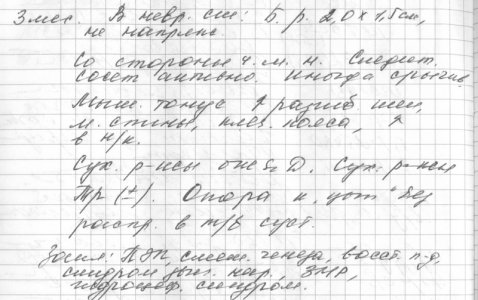 3 мес. В невр. ст: Б. р. 2,0 х 1,5 см,
не напряж
Со стороны ч. м. н. Следит.
сосет активно. Иногда срыгив
Мыш. тонус ↑ разгиб шеи,
м. спины, плеч. пояса, ↑
в н/к.
Сух. р-сы D. Сух. р-сы
(±). Опора на
распр. в т/б суст.
Закл: ПЭП, смеш. генеза, восст. п-д,
синдром двиг. нар., ЗМР,
гидроцеф. синдром.